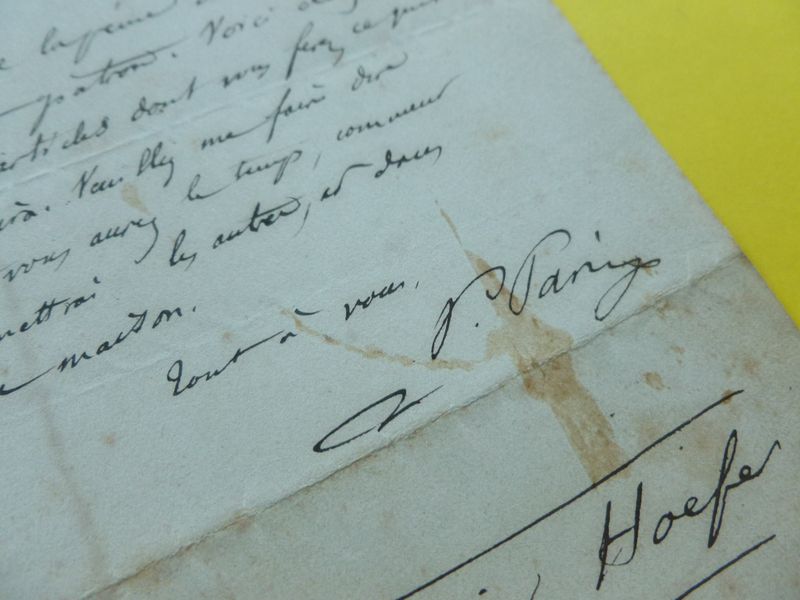 la peine
patron. Voici
articles dont vous ferez ce qui
Veuillez me faire dire
vous aurez le temps, comment
mettrai les autres, et dans
maison.
Tout à vous,
P. Paris
Hoefer